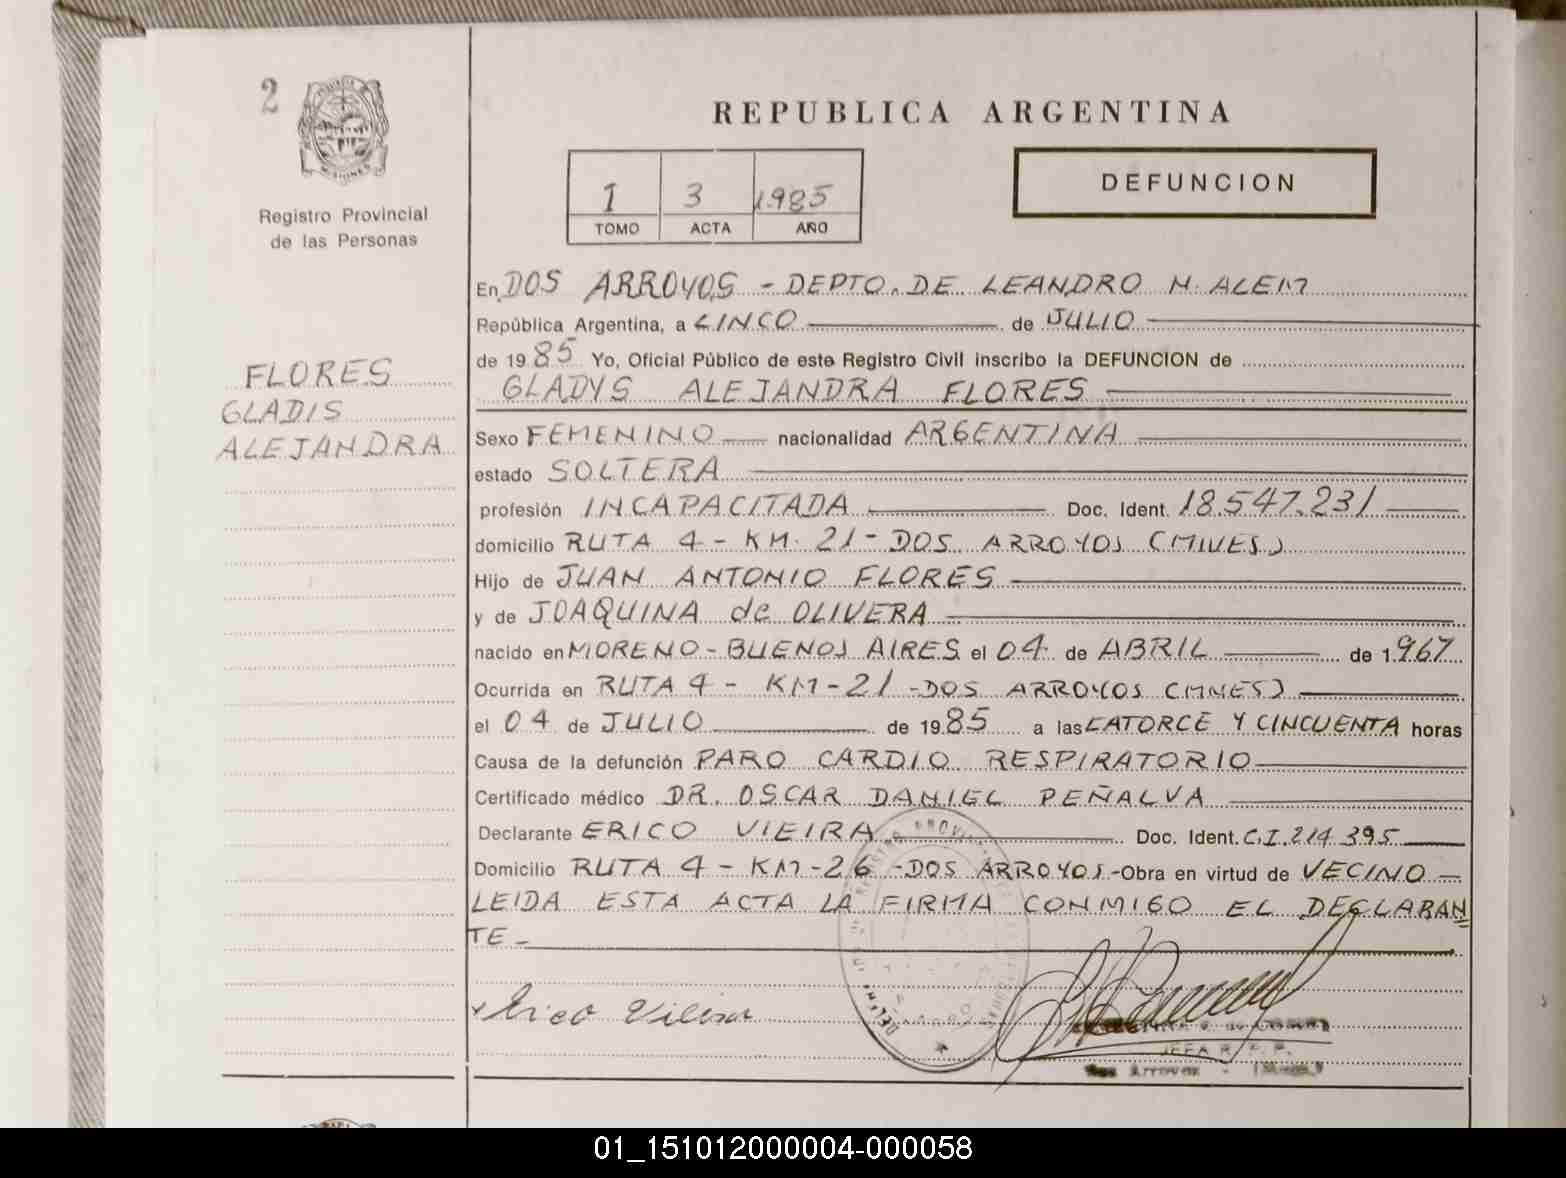 2
PROVINCIA DE
MISIONES
Registro Provincial
de las Personas
FLORES
GLADIS
ALEJANDRA
REPUBLICA ARGENTINA
1 3 1.985
TOMO ACTA AÑO
DEFUNCION
En DOS ARROYOS - DEPTO. DE LEANDRO N. ALEM
República Argentina, a CINCO de JULIO
de 19 85 Yo, Oficial Público de este Registro Civil inscribo la DEFUNCION de
GLADYS ALEJANDRA FLORES
Sexo FEMENINO nacionalidad ARGENTINA
estado SOLTERA
profesión INCAPACITADA Doc. Ident. 18.547.231
domicilio RUTA 4 - KM. 21 - DOS ARROYOS (MNES)
Hijo de JUAN ANTONIO FLORES
y de JOAQUINA de OLIVERA
nacido en MORENO - BUENOS AIRES el 04 de ABRIL de 1.967
Ocurrida en RUTA 4 - KM-21 - DOS ARROYOS (MNES)
el 04 de JULIO de 19 85 a las CATORCE Y CINCUENTA horas
Causa de la defunción PARO CARDIO RESPIRATORIO
Certificado médico DR. OSCAR DANIEL PEÑALVA
Declarante ERICO VIEIRA Doc. Ident. C.I. 214.395
Domicilio RUTA 4 - KM-26 - DOS ARROYOS - Obra en virtud de VECINO
LEIDA ESTA ACTA LA FIRMA CONMIGO EL DECLARAN
TE -
Erico Vieira
JEFA R. P. P.
Dos Arroyos - (Mnes.)
01_151012000004-000058